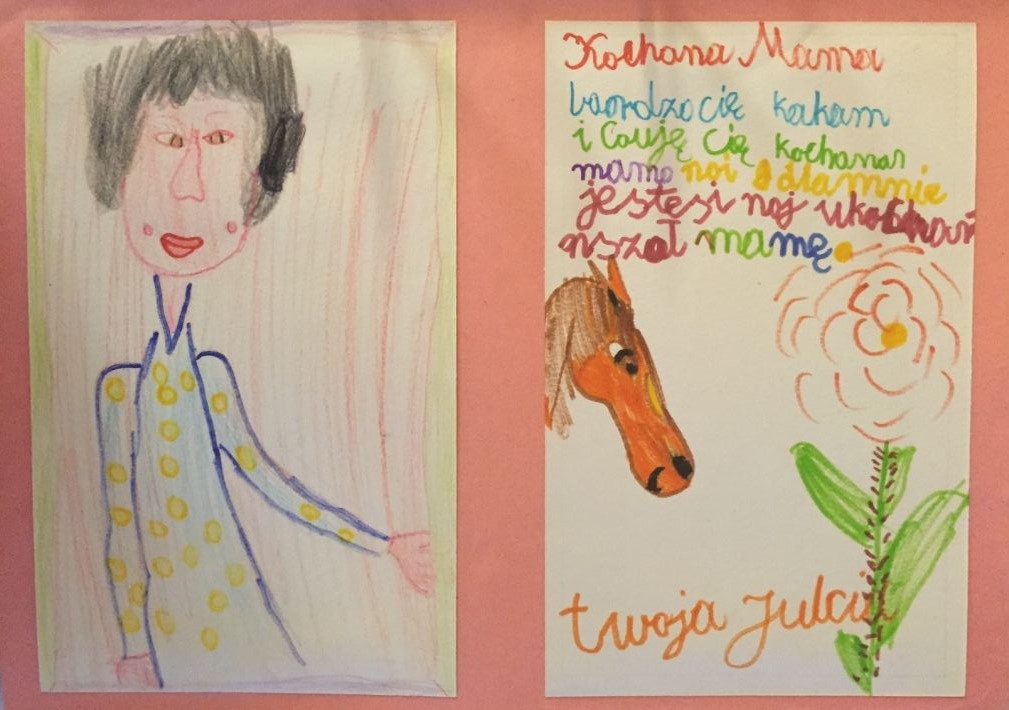 Kochana Mama
baordzo cię kakam
i Caują cię kochanas
mamo noi dlamnie
jestęsi noj ukochań
nszoł mamę.
twoja Julcia